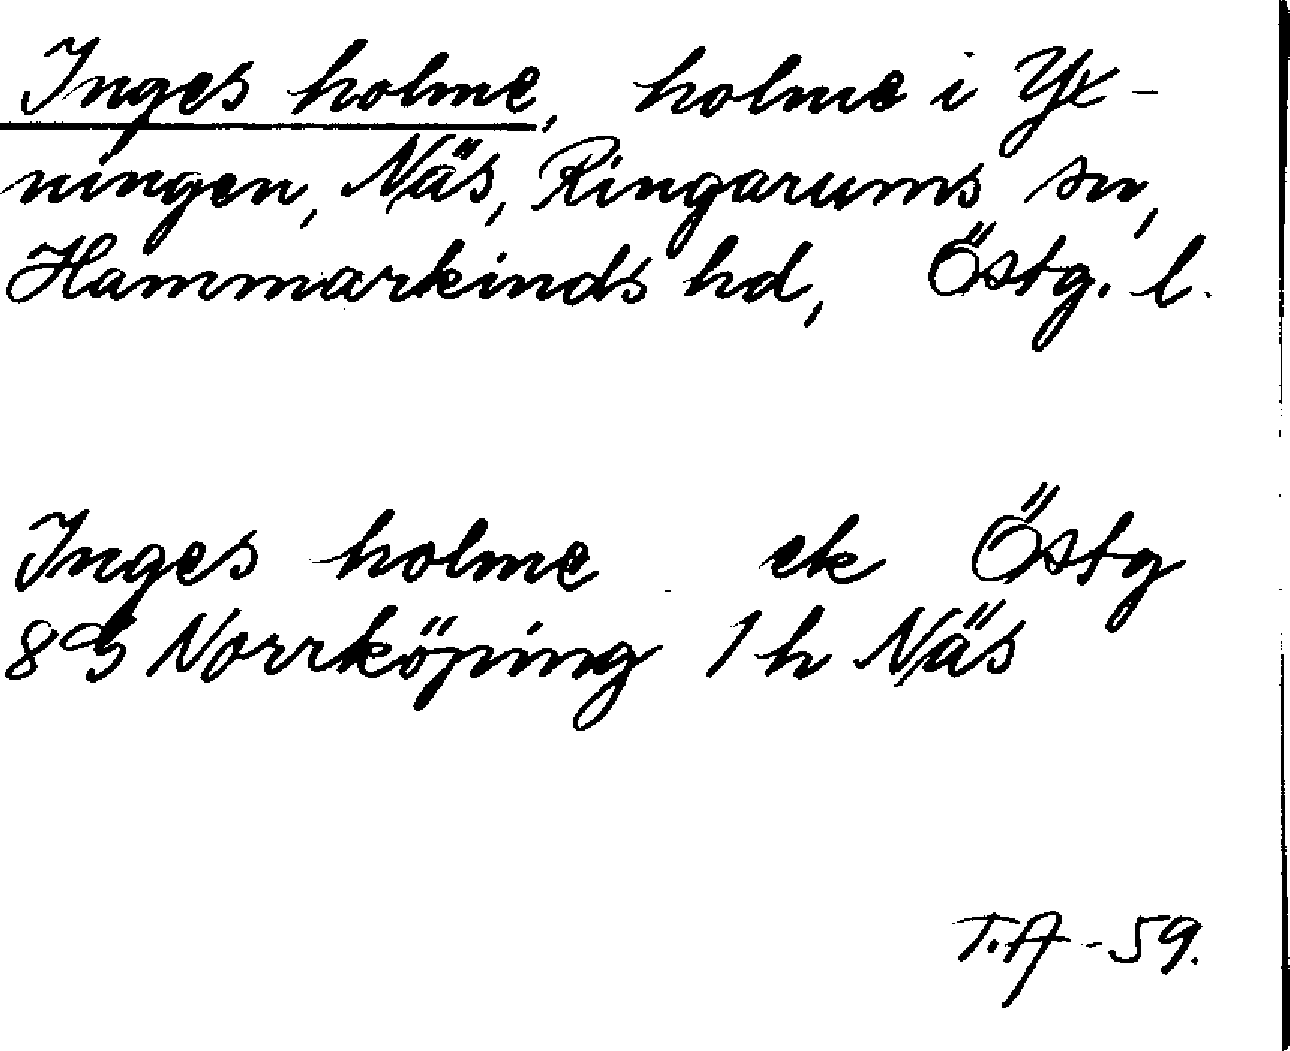 Inges holme, holme i Yx-
ningen, Näs, Ringarums sn,
Hammarkinds hd, Östg. l.
Inges holme ek Östg
8G Norrköping 1h Näs
T.A -59.